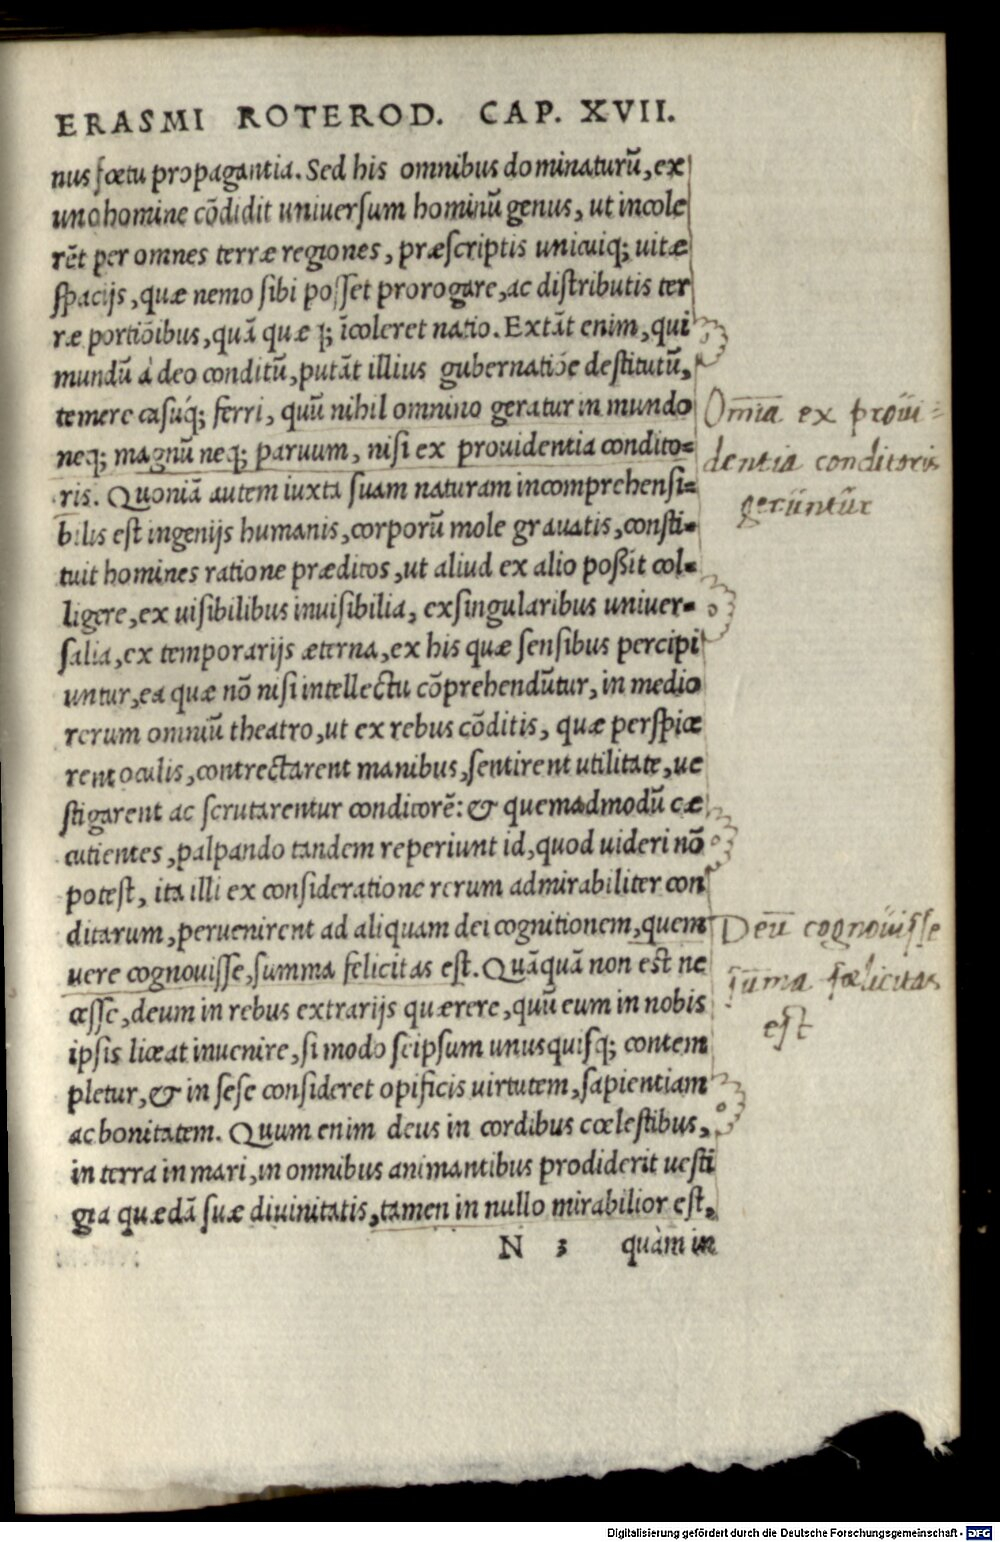 ERASMI ROTEROD. CAP. XVII.
nus fœtu propagantia. Sed his omnibus dominaturū, ex
uno homine cōdidit uniuersum hominū genus, ut incole
rēt per omnes terræ regiones, præscriptis unicuiq; uitæ
spacijs, quæ nemo sibi posset prorogare, ac distributis ter
ræ portiōibus, quā quæq; īcoleret natio. Extāt enim, qui
mundū à deo conditū, putāt illius gubernatiōe destitutū,
temere casuq́; ferri, quū nihil omnino geratur in mundo
neq; magnū neq; paruum, nisi ex prouidentia condito-
ris. Quoniā autem iuxta suam naturam incomprehensi-
bilis est ingenijs humanis, corporū mole grauatis, consti-
tuit homines ratione præditos, ut aliud ex alio possīt col-
ligere, ex uisibilibus inuisibilia, ex singularibus uniuer-
salia, ex temporarijs æterna, ex his quæ sensibus percipi
untur, ea quæ nō nisi intellectu cōprehendūtur, in medio
rerum omniū theatro, ut ex rebus cōditis, quæ perspice
rent oculis, contrectarent manibus, sentirent utilitate, ue
stigarent ac scrutarentur conditorē: & quemadmodū cæ
cutientes, palpando tandem reperiunt id, quod uideri nō
potest, ita illi ex consideratione rerum admirabiliter con
ditarum, peruenirent ad aliquam dei cognitionem, quem
uere cognouisse, summa felicitas est. Quāquā non est ne
cesse, deum in rebus extrarijs quærere, quū eum in nobis
ipsis liceat inuenire, si modo seipsum unusquisq; contem
pletur, & in sese consideret opificis uirtutem, sapientiam
ac bonitatem. Quum enim deus in cordibus cœlestibus,
in terra in mari, in omnibus animantibus prodiderit uesti
gia quædā suæ diuinitatis, tamen in nullo mirabilior est,
N 3 quàm in
Om̄ia ex proui=
dentia conditoris
geruntur
Deū cognouisse
sum̄a fœlicitas
est
Digitalisierung gefördert durch die Deutsche Forschungsgemeinschaft - DFG